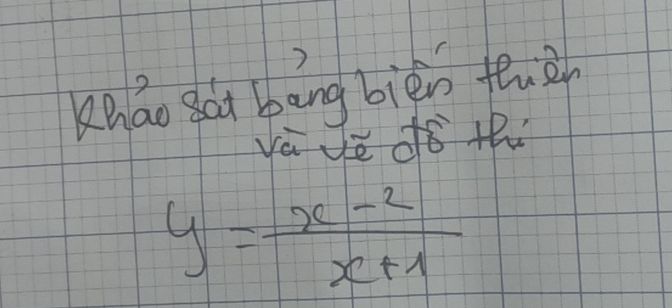 Khảo sát bảng biến thiên
và vẽ đồ thị
y = x - 2 / x + 1